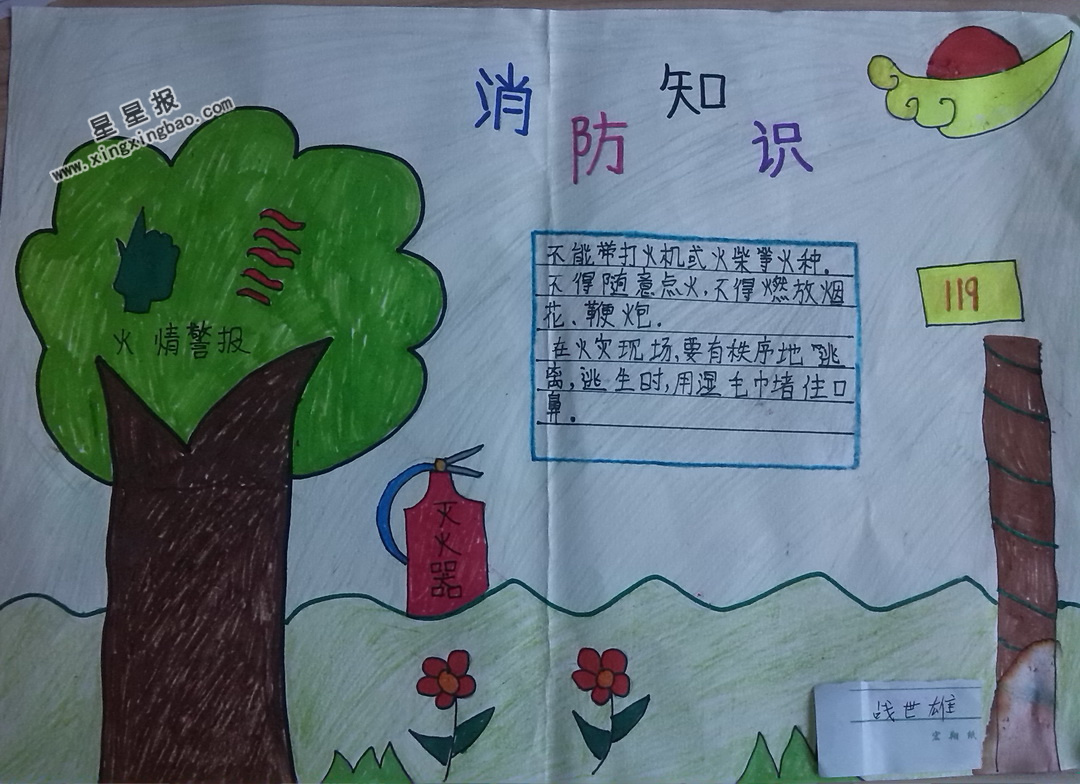 星星报
www.xingxingbao.com
消防知识
不能带打火机或火柴等火种.
不得随意点火.不得燃放烟
花、鞭炮.
在火灾现场,要有秩序地逃
离,逃生时,用湿毛巾堵住口
鼻.
119
火情警报
灭火器
战世雄